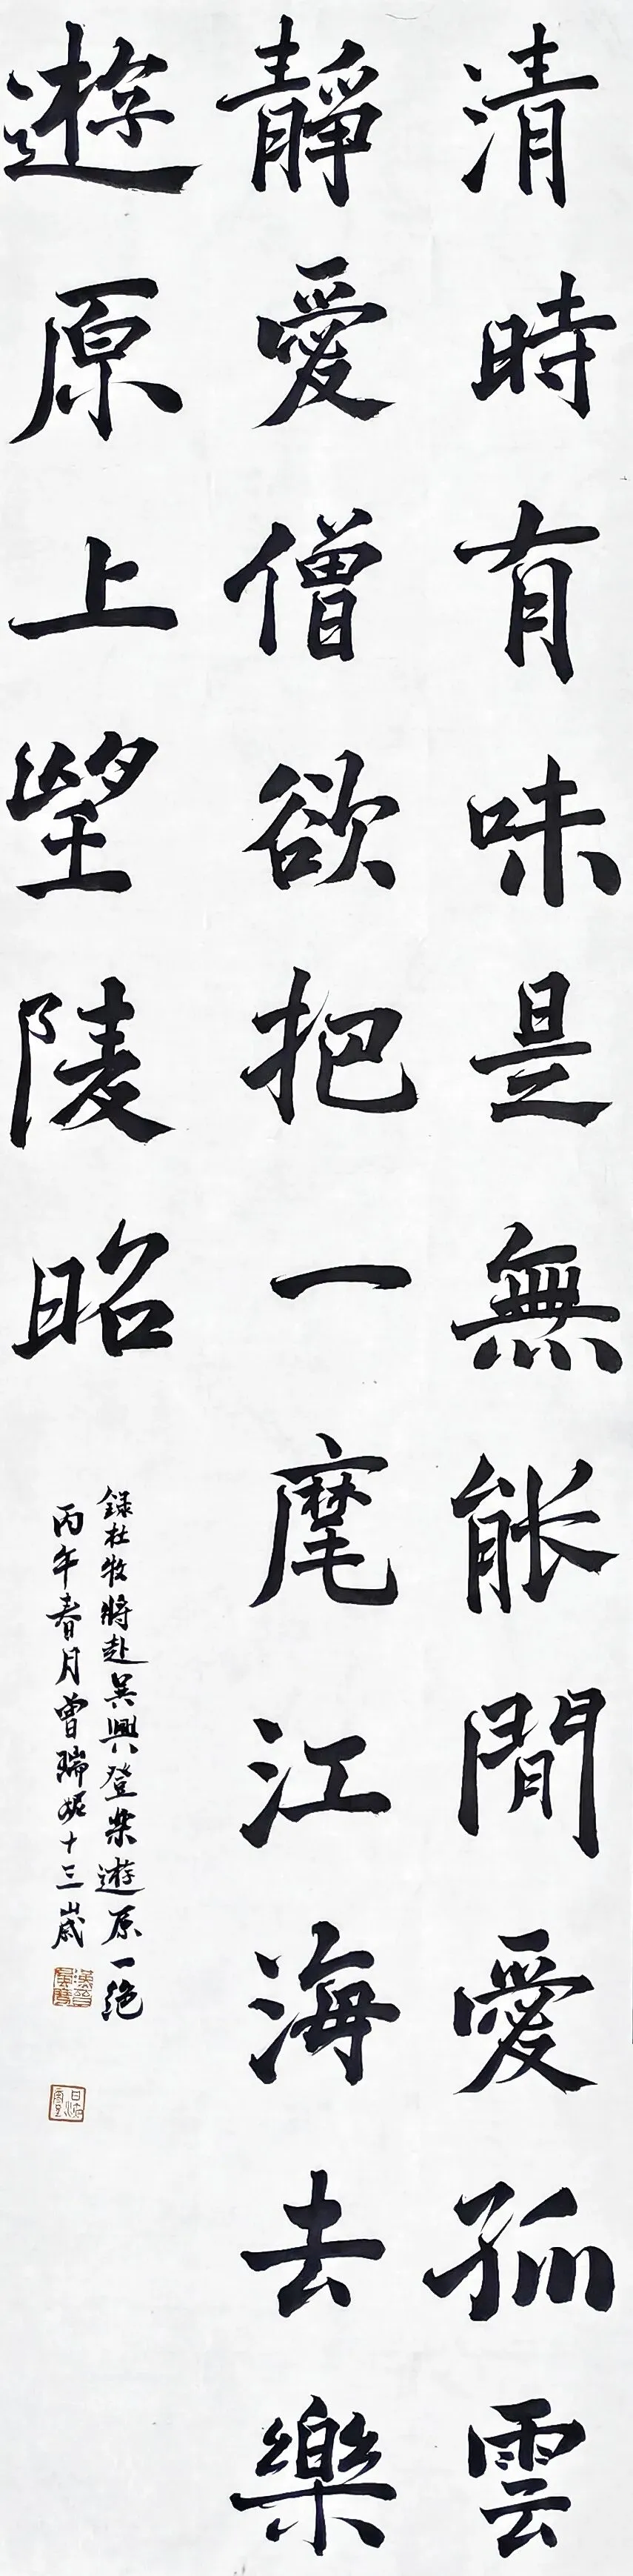 清時有味是無能閒愛孤雲
靜愛僧欲把一麾江海去樂
遊原上望陵昭
錄杜牧將赴吳興登樂遊原一絕
丙午春月曾瑞妮十三歲